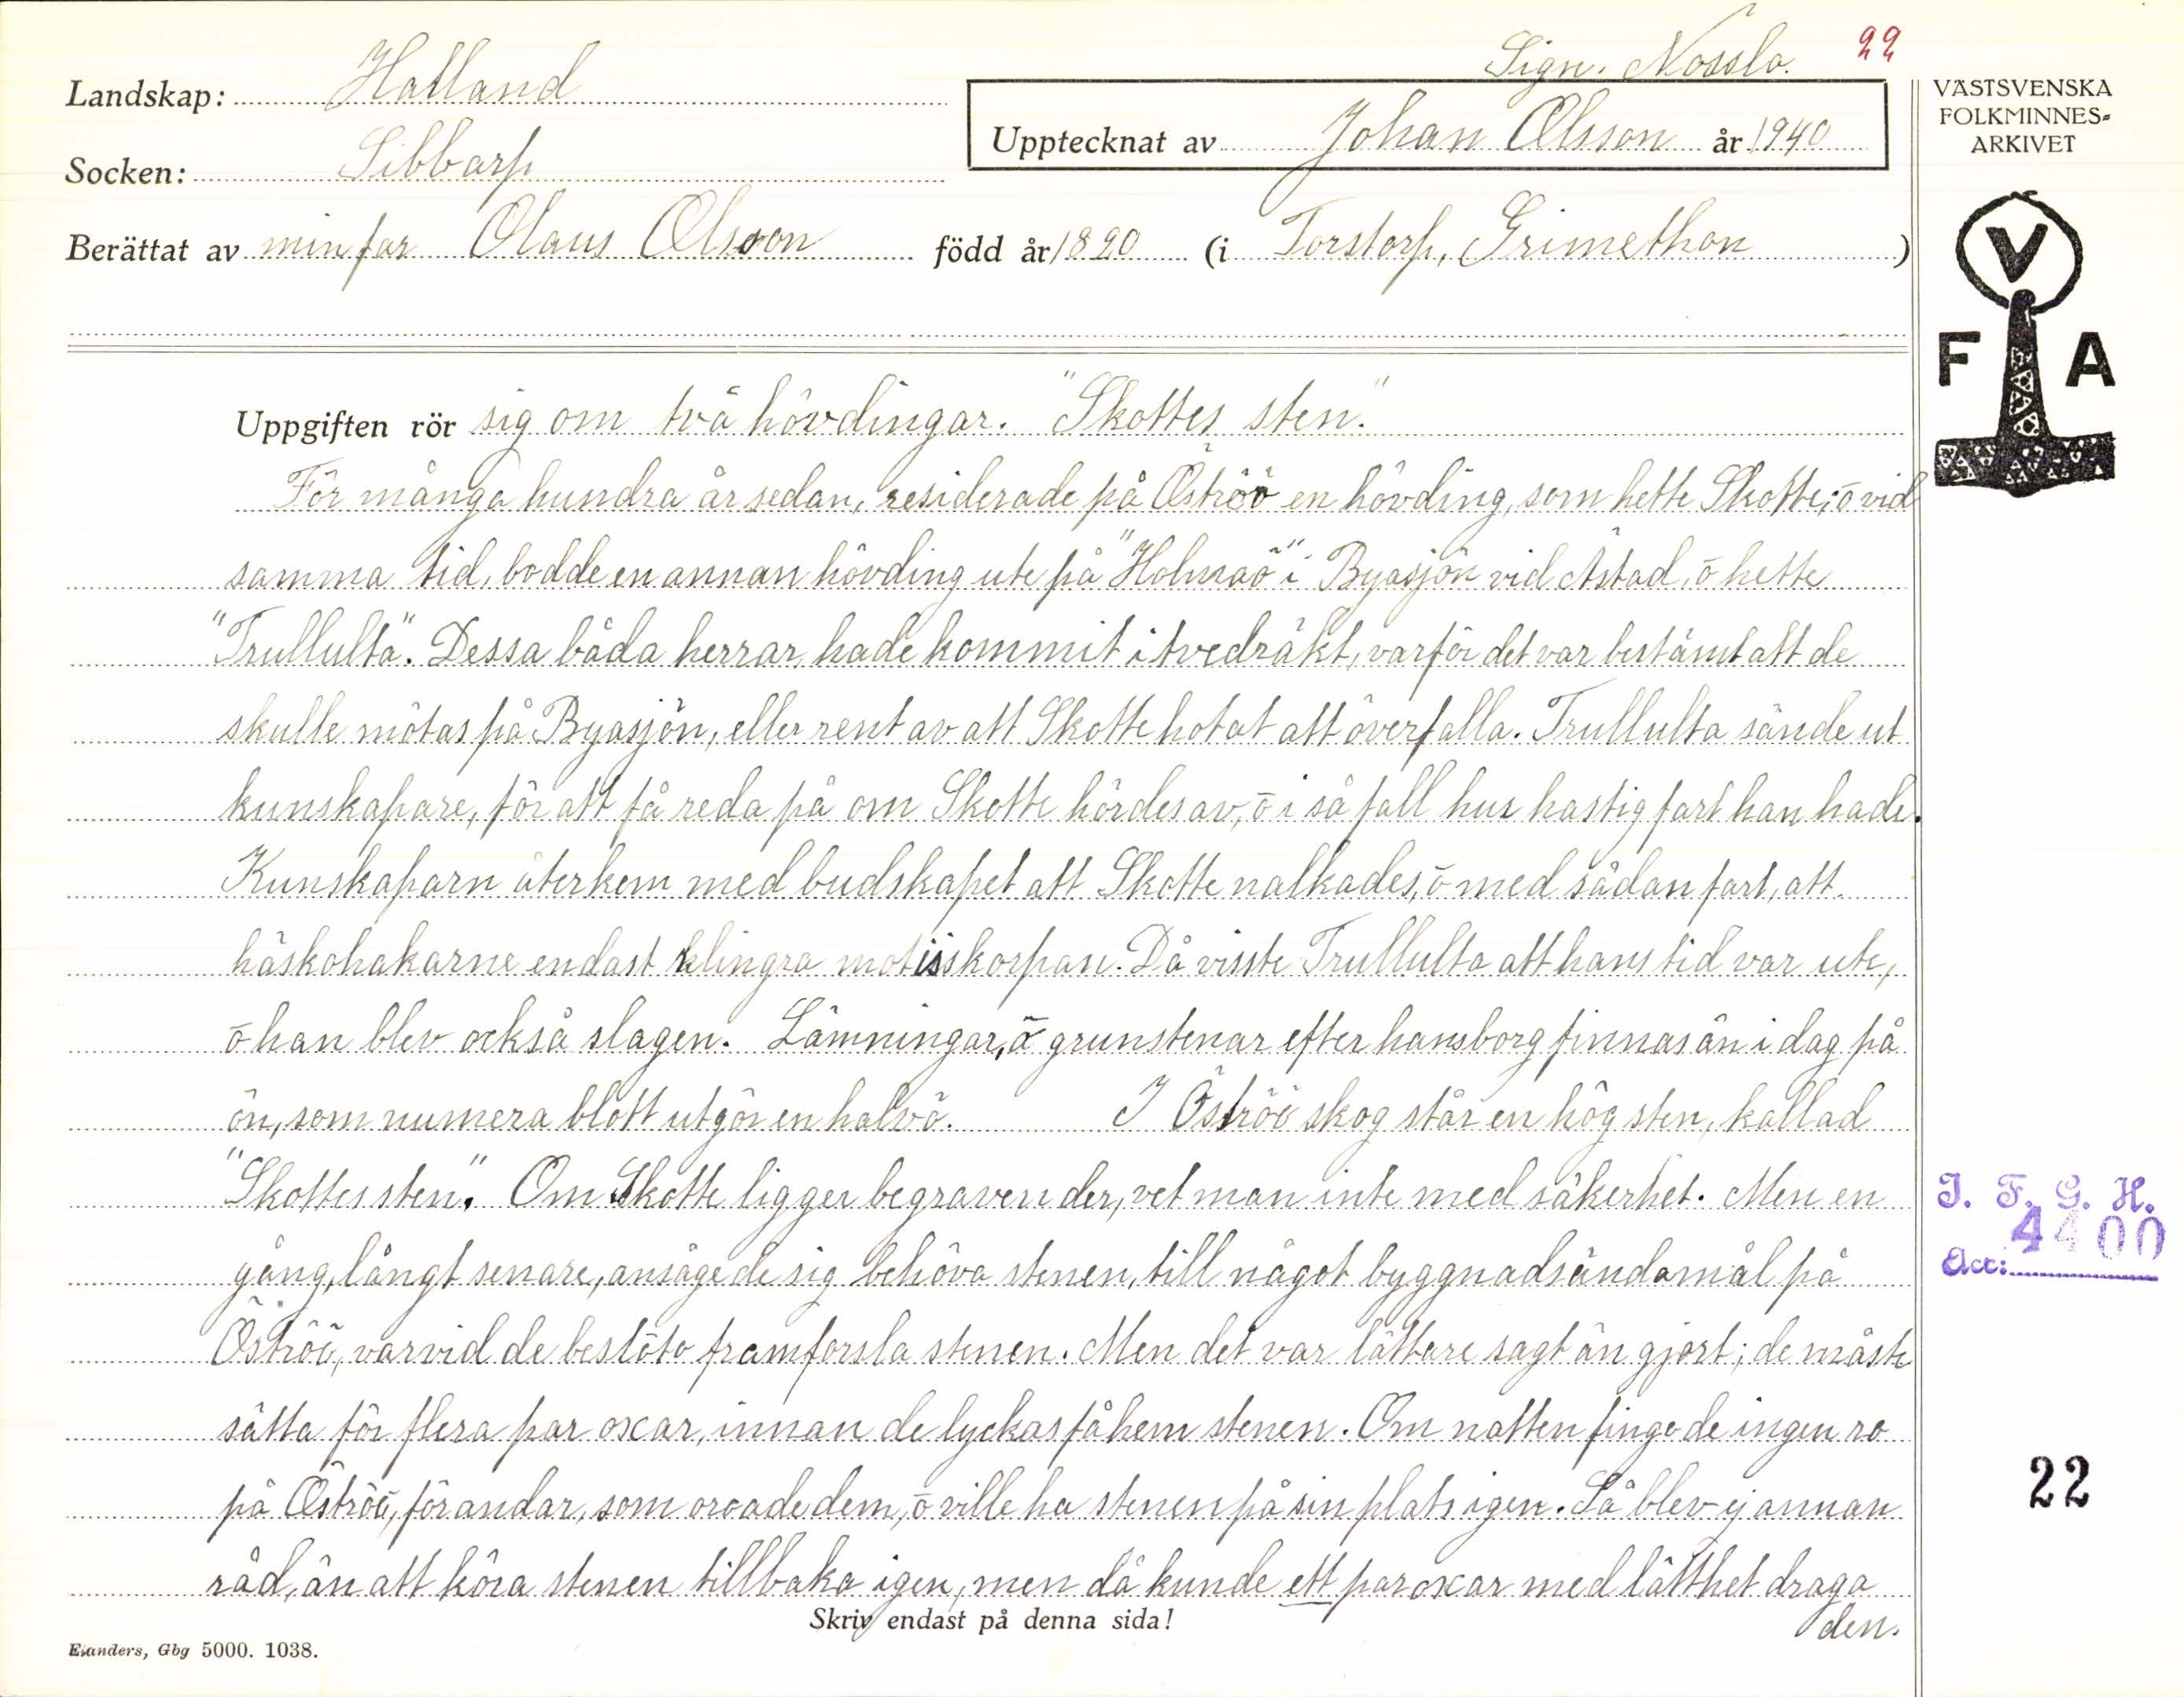 Sign. Nosslo. 22
Landskap: Halland
Upptecknat av Johan Olsson år 1940
Socken: Sibbarp
Berättat av min far Olaus Olsson född år 1820 (i Torstorp, Grimethon )
VÄSTSVENSKA
FOLKMINNES=
ARKIVET
V
F A
Uppgiften rör sig om två hövdingar. "Skottes sten."
För många hundra år sedan, residerade på Öströö en hövding, som hette Skotte; ō vid
samma tid, bodde en annan hövding ute på "Holmaö" i Byasjön vid Åstad, ō hette
"Trullulta". Dessa båda herrar, hade kommit i tvedräkt, varför det var bestämt att de
skulle mötas på Byasjön, eller rent av att Skotte hotat att överfalla. Trullulta sände ut
kunskapare, för att få reda på om Skotte hördes av, ō i så fall hur hastig fart han hade.
Kunskaparn återkom med budskapet att Skotte nalkades, ō med sådan fart, att
häskohakarne endast klingra mot isskorpan. Då visste Trullulta att hans tid var ute,
ō han blev också slagen. Lämningar, ō grunstenar efter hans borg finnas än i dag på
ön, som numera blott utgör en halvö. I Öströö skog står en hög sten, kallad
"Skottes sten". Om Skotte ligger begraven der, vet man inte med säkerhet. Men en
gång, långt senare, ansåge de sig behöva stenen, till något byggnadsändamål på
Öströö, varvid de beslöto framforsla stenen. Men det var lättare sagt än gjort; de måste
sätta för flera par oxar, innan de lyckas få hem stenen. Om natten fingo de ingen ro
på Öströö, för andar, som oroade dem, ō ville ha stenen på sin plats igen. Så blev ej annan
råd, än att köra stenen tillbaka igen, men då kunde ett par oxar med lätthet draga
den.
Skriv endast på denna sida!
Elanders, Gbg 5000. 1038.
I. F. G. H.
Acc: 4400
22